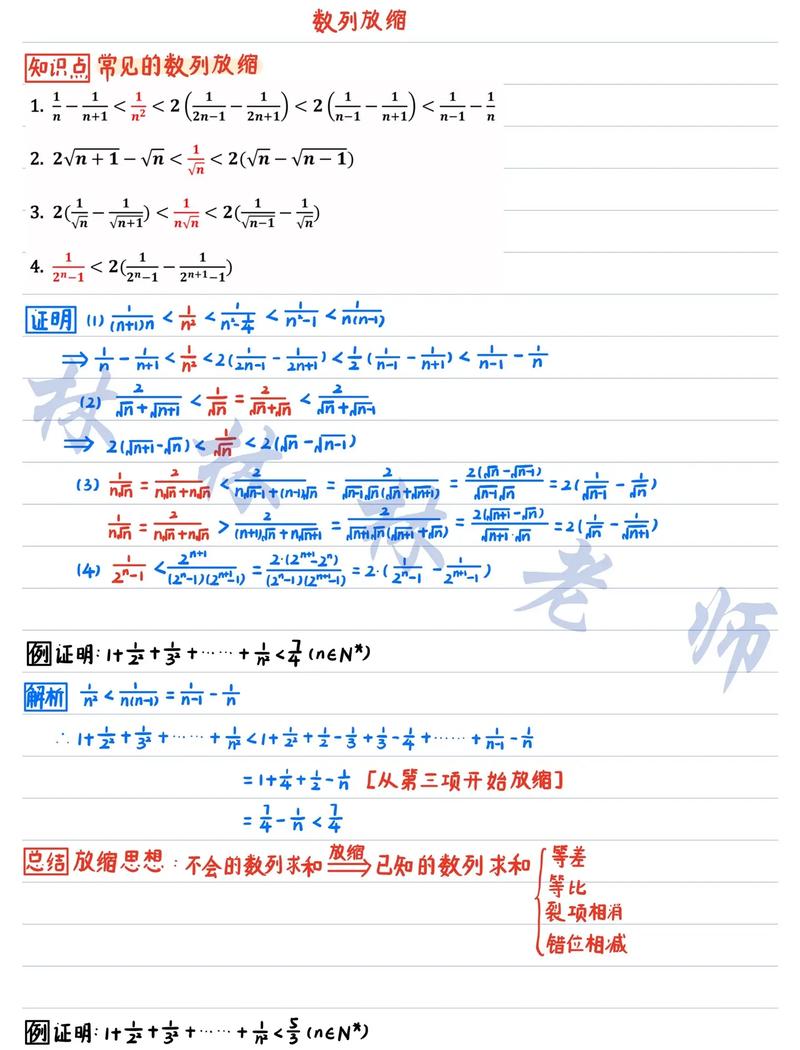 数列放缩
知识点 常见的数列放缩
1. 1/n - 1/(n+1) < 1/n² < 2(1/(2n-1) - 1/(2n+1)) < 2(1/(n-1) - 1/(n+1)) < 1/(n-1) - 1/n
2. 2√(n+1) - √n < 1/√n < 2(√n - √(n-1))
3. 2(1/√n - 1/√(n+1)) < 1/(n√n) < 2(1/√(n-1) - 1/√n)
4. 1/(2ⁿ-1) < 2(1/(2ⁿ-1) - 1/(2ⁿ⁺¹-1))
证明 (1) 1/((n+1)n) < 1/n² < 1/(n²-1/4) < 1/(n²-1) < 1/(n(n-1))
⇒ 1/n - 1/(n+1) < 1/n² < 2(1/(2n-1) - 1/(2n+1)) < 1/2(1/(n-1) - 1/(n+1)) < 1/(n-1) - 1/n
(2) 2/(√n+√(n+1)) < 1/√n = 2/(√n+√n) < 2/(√n+√(n-1))
⇒ 2(√(n+1)-√n) < 1/√n < 2(√n-√(n-1))
(3) 1/(n√n) = 2/(n√n+n√n) < 2/(n√(n-1)+(n-1)√n) = 2/(√(n-1)√n(√n+√(n+1))) = 2(√n-√(n-1))/(√(n-1)√n) = 2(1/√(n-1) - 1/√n)
1/(n√n) = 2/(n√n+n√n) > 2/((n+1)√n+n√(n+1)) = 2/(√(n+1)√n(√(n+1)+√n)) = 2(√(n+1)-√n)/(√(n+1)·√n) = 2(1/√n - 1/√(n+1))
(4) 1/(2ⁿ-1) < 2ⁿ⁺¹/((2ⁿ-1)(2ⁿ⁺¹-1)) = 2·(2ⁿ⁺¹-2ⁿ)/((2ⁿ-1)(2ⁿ⁺¹-1)) = 2·(1/(2ⁿ-1) - 1/(2ⁿ⁺¹-1))
林林林老师
例 证明: 1+1/2²+1/3²+……+1/n²<7/4 (n∈N*)
解析 1/n² < 1/(n(n-1)) = 1/(n-1) - 1/n
∴ 1+1/2²+1/3²+……+1/n² < 1+1/2²+1/2-1/3+1/3-1/4+……+1/(n-1)-1/n
= 1+1/4+1/2-1/n [从第三项开始放缩]
= 7/4 - 1/n < 7/4
总结 放缩思想: 不会的数列求和 放缩⇒ 已知的数列求和 { 等差
等比
裂项相消
错位相减
例 证明: 1+1/2²+1/3²+……+1/n²<5/3 (n∈N*)